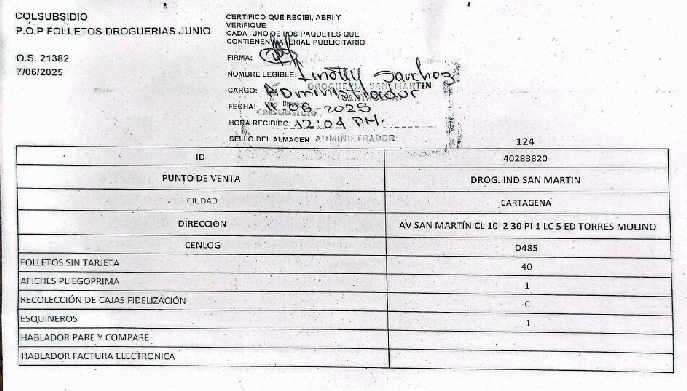 COLSUBSIDIO
P.O.P FOLLETOS DROGUERIAS JUNIO
O.S. 21382
7/06/2025
CERTIFICO QUE RECIBI, ABRI Y
VERIFIQUE
CADA UNO DE LOS PAQUETES QUE
CONTIENEN MATERIAL PUBLICITARIO
FIRMA:
NOMBRE LEGIBLE: Sanchez
DROGUERIA SAN MARTIN
CARGO: Administrador
FECHA: 06 2025
HORA RECIBIDO: 12:04 PM.
SELLO DEL ALMACEN ADMINISTRADOR
124
ID 40283820
PUNTO DE VENTA DROG. IND SAN MARTIN
CIUDAD CARTAGENA
DIRECCION AV SAN MARTÍN CL 10 2 30 PI 1 LC 5 ED TORRES MOLINO
CENLOG D485
FOLLETOS SIN TARJETA 40
AFICHES PLIEGOPRIMA 1
RECOLECCIÓN DE CAJAS FIDELIZACIÓN
ESQUINEROS 1
HABLADOR PARE Y COMPARE
HABLADOR FACTURA ELECTRONICA